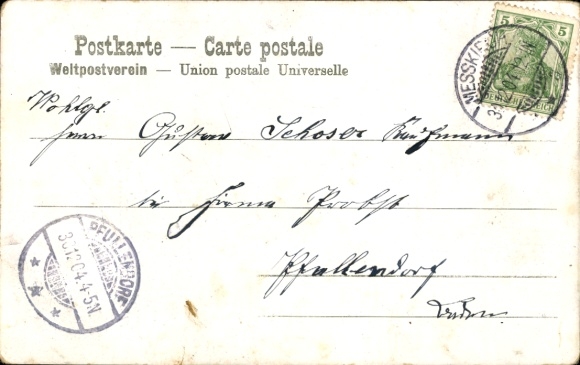 Postkarte — Carte postale
Weltpostverein — Union postale Universelle
5 5
MESSKIRCH
Wohlgb.
Herrn Gustav Schoser Kaufmann
bei Firma Probst
Pfullendorf
Baden
PFULLENDORF
30.12.04.4-5N